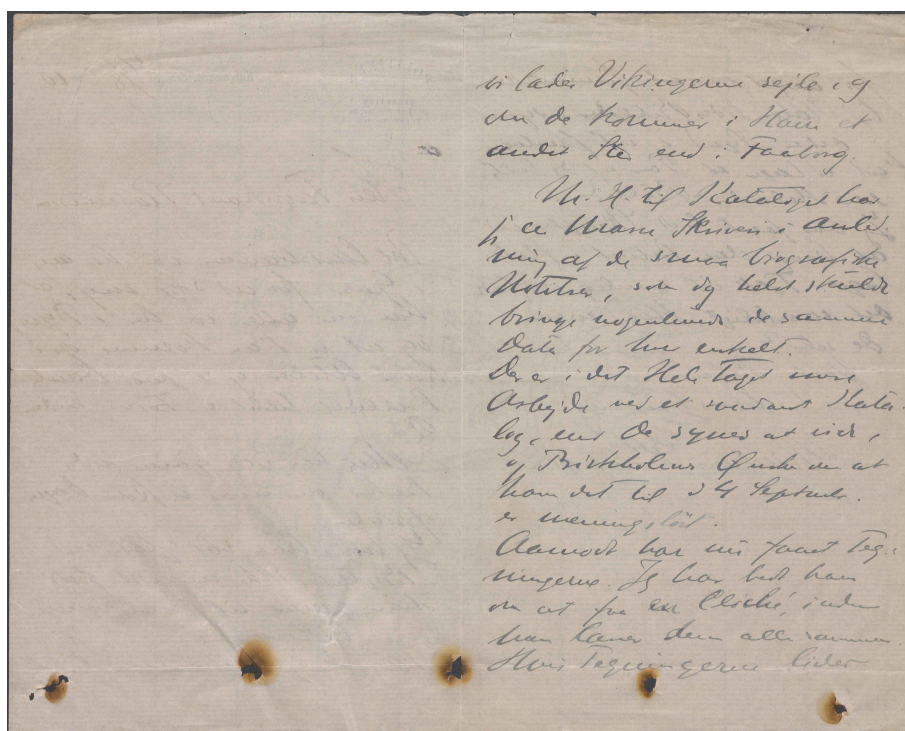 vi lader Vikingerne sejle og
om de kommer i Havn et
andet Sted end i Faaborg.
M. H. t. Kataloget har
jeg en Masse Skriveri i Anled
ning af de smaa biografiske
Notitser, som jeg helst skulde
bringe nogenlunde de samme
Data for hver enkelt.
Der er i det Hele taget mere
Arbejde ved et saadant Kata-
log, end De synes at vide,
og Birkholms Ønske om at
have det til 24 Septemb.
er meningsløst.
Aamodt har nu faaet Teg-
ningerne. Jeg har bedt ham
om at faa en Cliché, inden
han laver dem allesammen.
Hvis Tegningerne lider